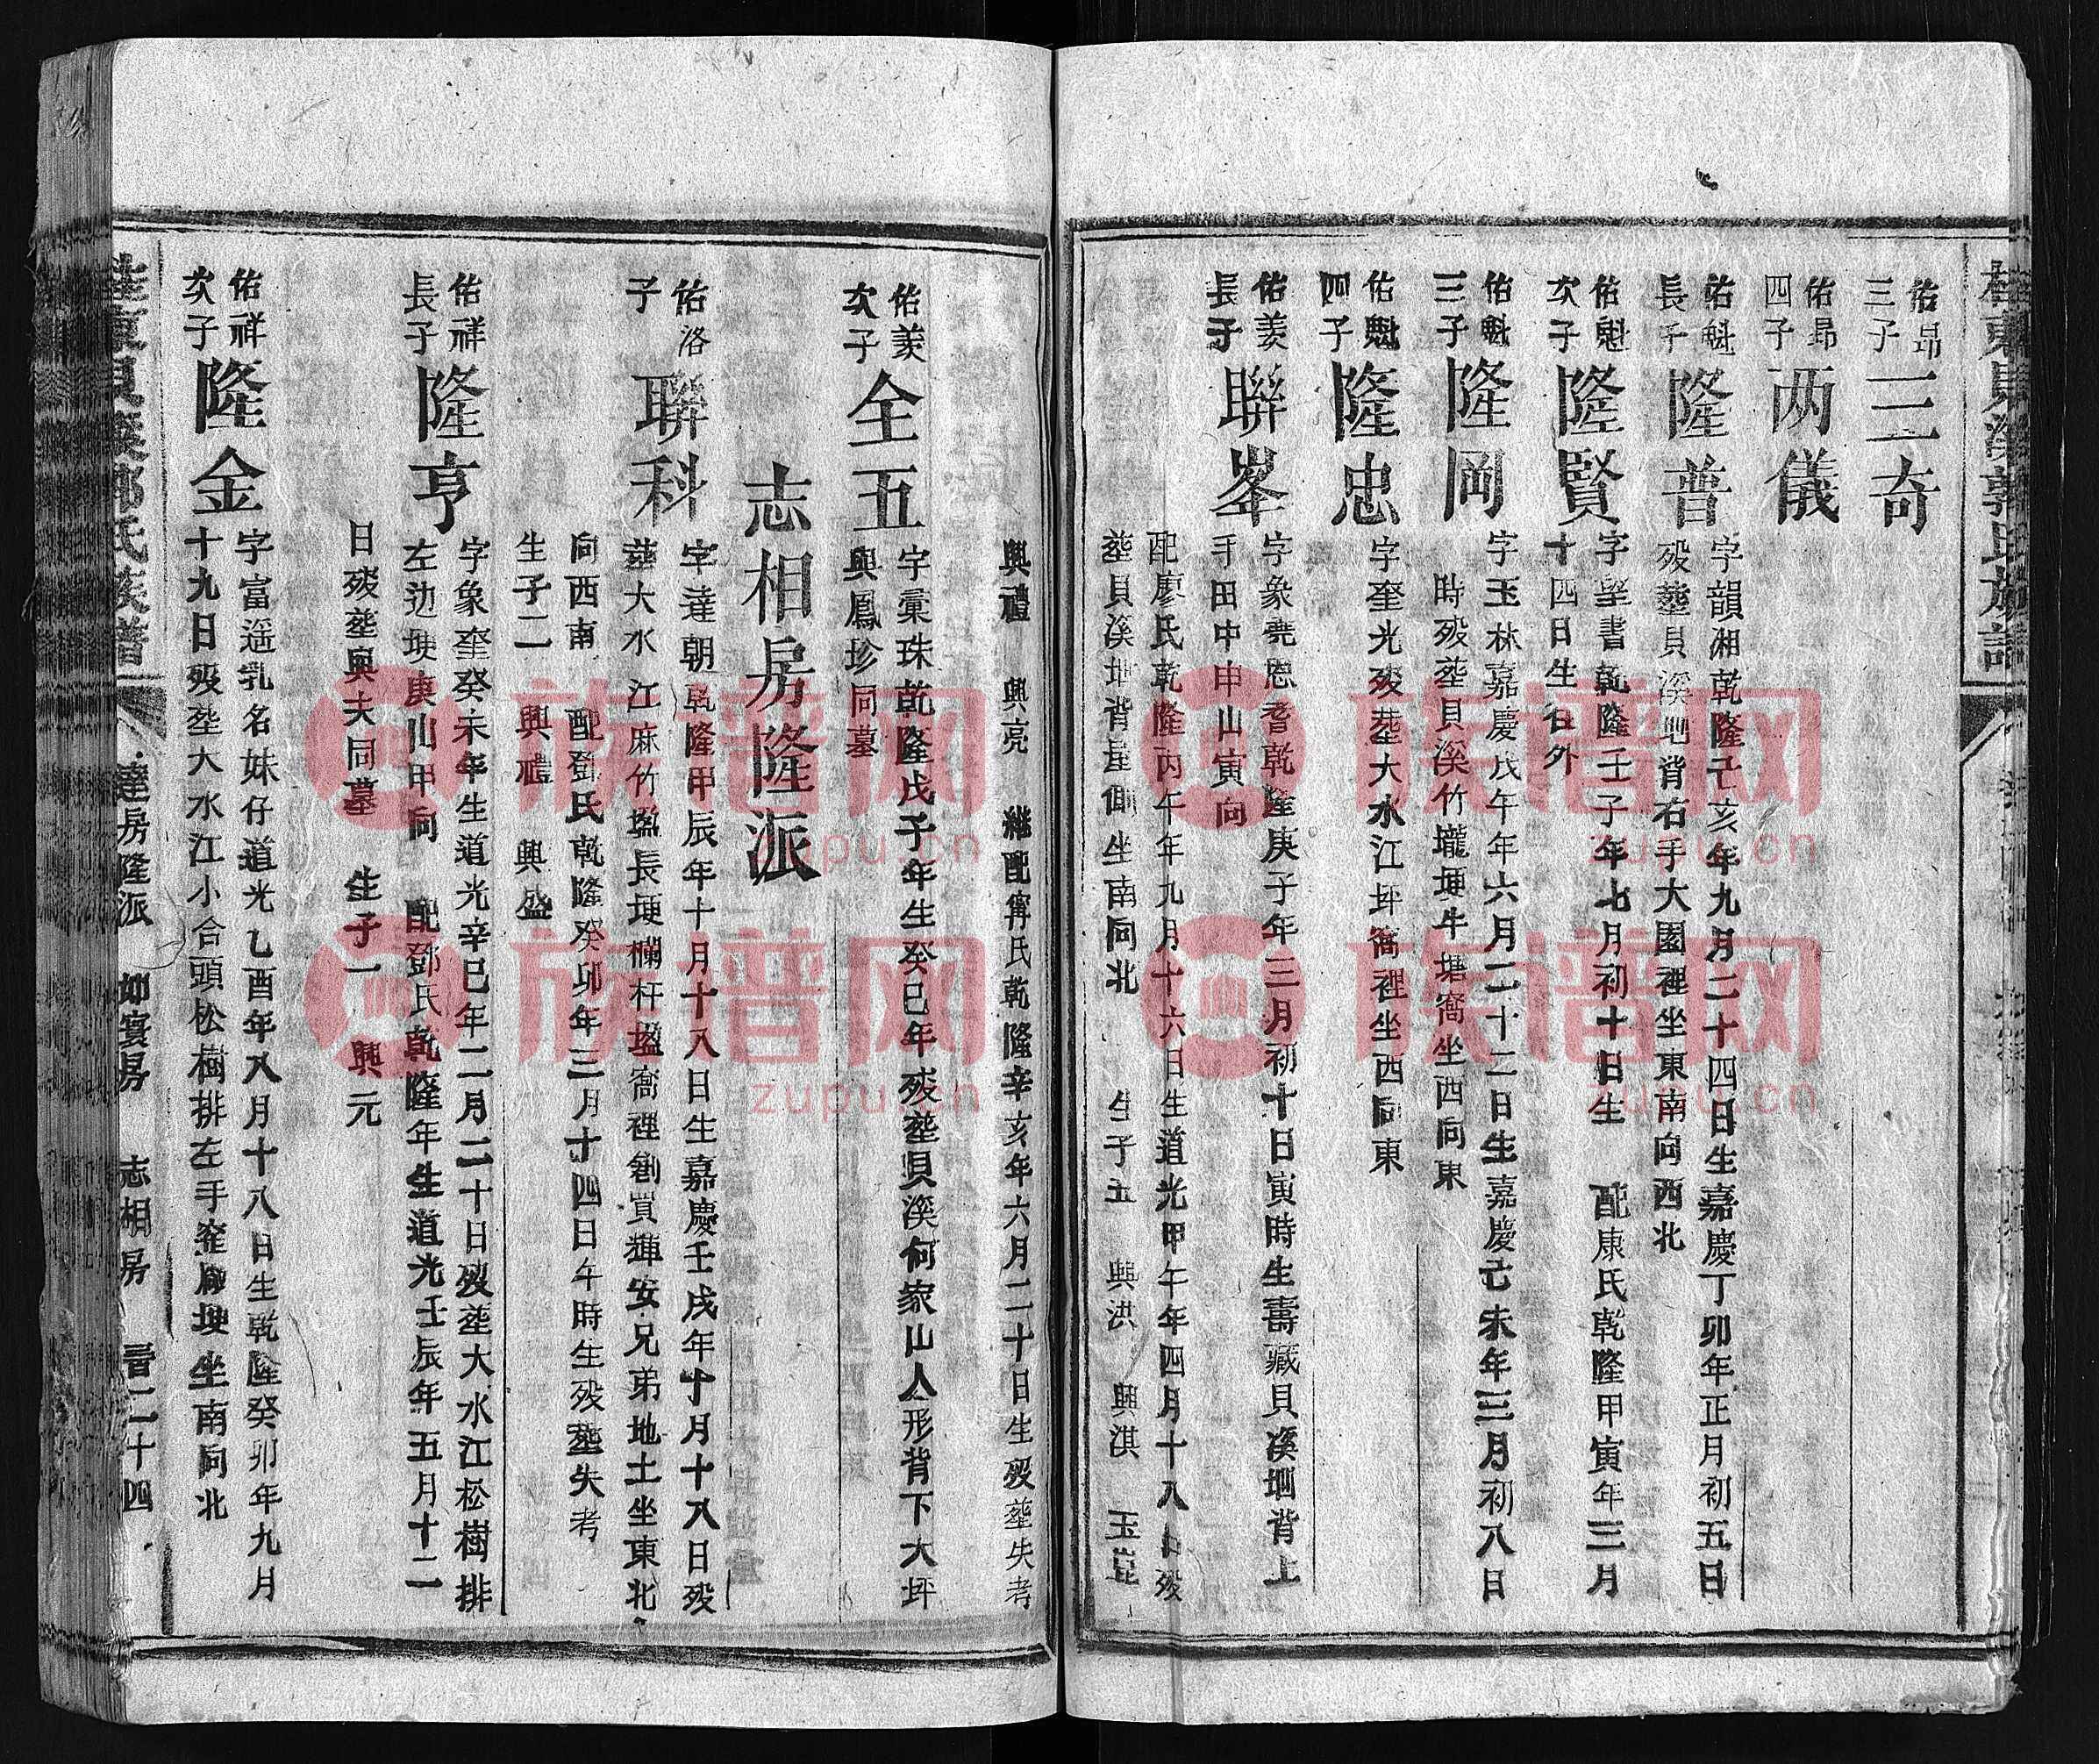 佑昂
三子
三奇
佑昂
四子
两儀
佑魁
長子
隆普
字韻湘乾隆己亥年九月二十四日生嘉慶丁卯年正月初五日
殁塟貝溪地背右手大園裡坐東南向西北
佑魁
次子
隆賢
字堅書乾隆壬子年七月初十日生 配康氏乾隆甲寅年三月
十四日生 在外
佑魁
三子
隆岡
字玉林嘉慶戊午年六月二十二日生嘉慶己未年三月初八日
時殁塟貝溪竹壠埂牛塘窩坐西向東
佑魁
四子
隆忠
字奎光殁塟大水江坪窩裡坐西向東
佑羡
長子
聯峯
字象堯恩耆乾隆庚子年三月初十日寅時生壽藏貝溪地背上
手田中申山寅向
配廖氏乾隆丙午年九月十六日生道光甲午年四月十八日殁
塟貝溪地背屋側坐南向北 生子五 興洪 興淇 玉崑
興禮 興亮 繼配甯氏乾隆辛亥年六月二十日生殁塟失考
佑羡
次子
全五
字彙珠乾隆戊子年生癸巳年殁塟貝溪何家山人形背下大坪
與鳳珍同墓
志相房隆派
佑洛
子
聯科
字達朝乾隆甲辰年十月十八日生嘉慶壬戌年十月十八日殁
塟大水江麻竹塭長埂欄杆塭窩裡創買輝安兄弟地土坐東北
向西南 配鄧氏乾隆癸卯年三月十四日午時生殁塟失考
生子二 興禮 興盛
佑祥
長子
隆亨
字象奎癸未年生道光辛巳年二月二十日殁塟大水江松樹排
左边埂庚山甲向 配鄧氏乾隆年生道光壬辰年五月十二
日殁塟與夫同墓 生子一 興元
佑祥
次子
隆金
字富遥乳名妹仔道光乙酉年八月十八日生乾隆癸卯年九月
十九日殁塟大水江小合頭松樹排左手窰廠埂坐南向北
達房隆派 如寰房 志相房 二十四
族谱网
zupu.cn
族谱网
zupu.cn
族谱网
zupu.cn
族谱网
zupu.cn